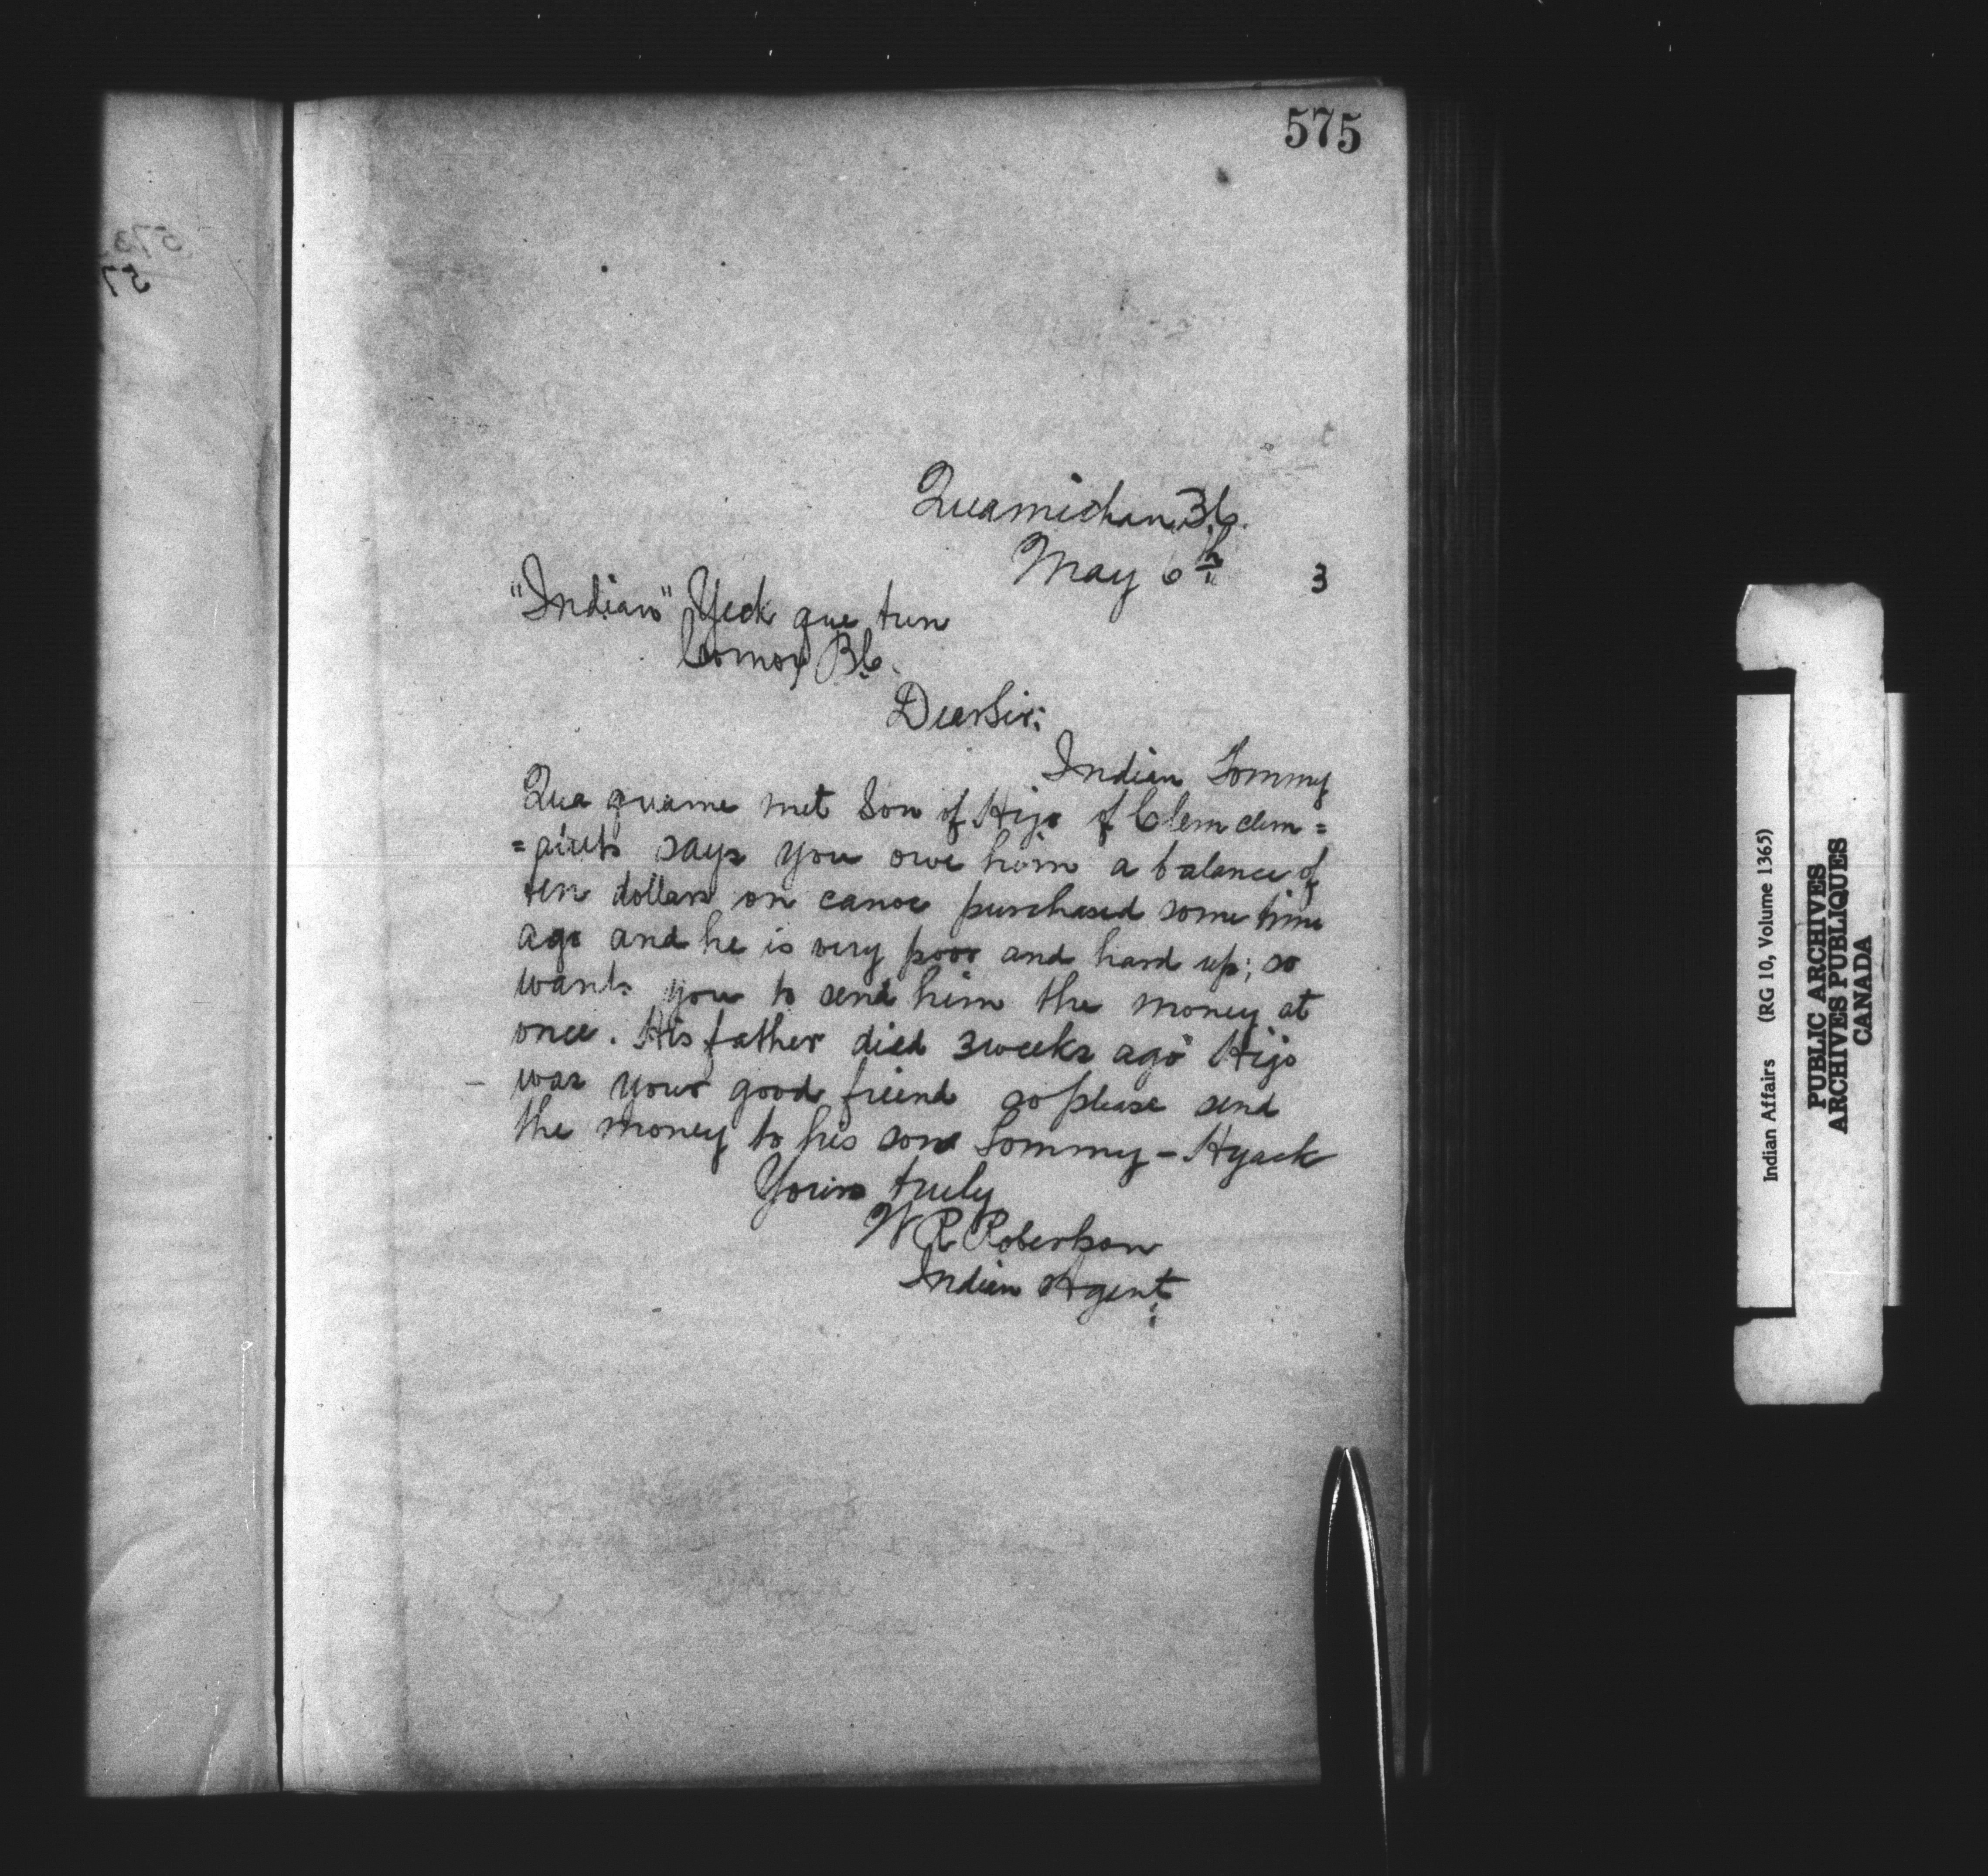 575
Quamichan B.C.
May 6th 3
"Indian" Yeck que tun
Comox B.C.
Dear Sir;
Indian Tommy
Qua quame met Son of Hijo of Clem clem =
= aluts says you owe him a balance of
ten dollars on canoe purchased some time
ago and he is very poor and hard up; so
wants you to send him the money at
once. His father died 3 weeks ago Hijo
was your good friend so please send
the money to his son Tommy - Hyack
Yours truly
W R Robertson
Indian Agent
573
57
Indian Affairs (RG 10, Volume 1365)
PUBLIC ARCHIVES
ARCHIVES PUBLIQUES
CANADA